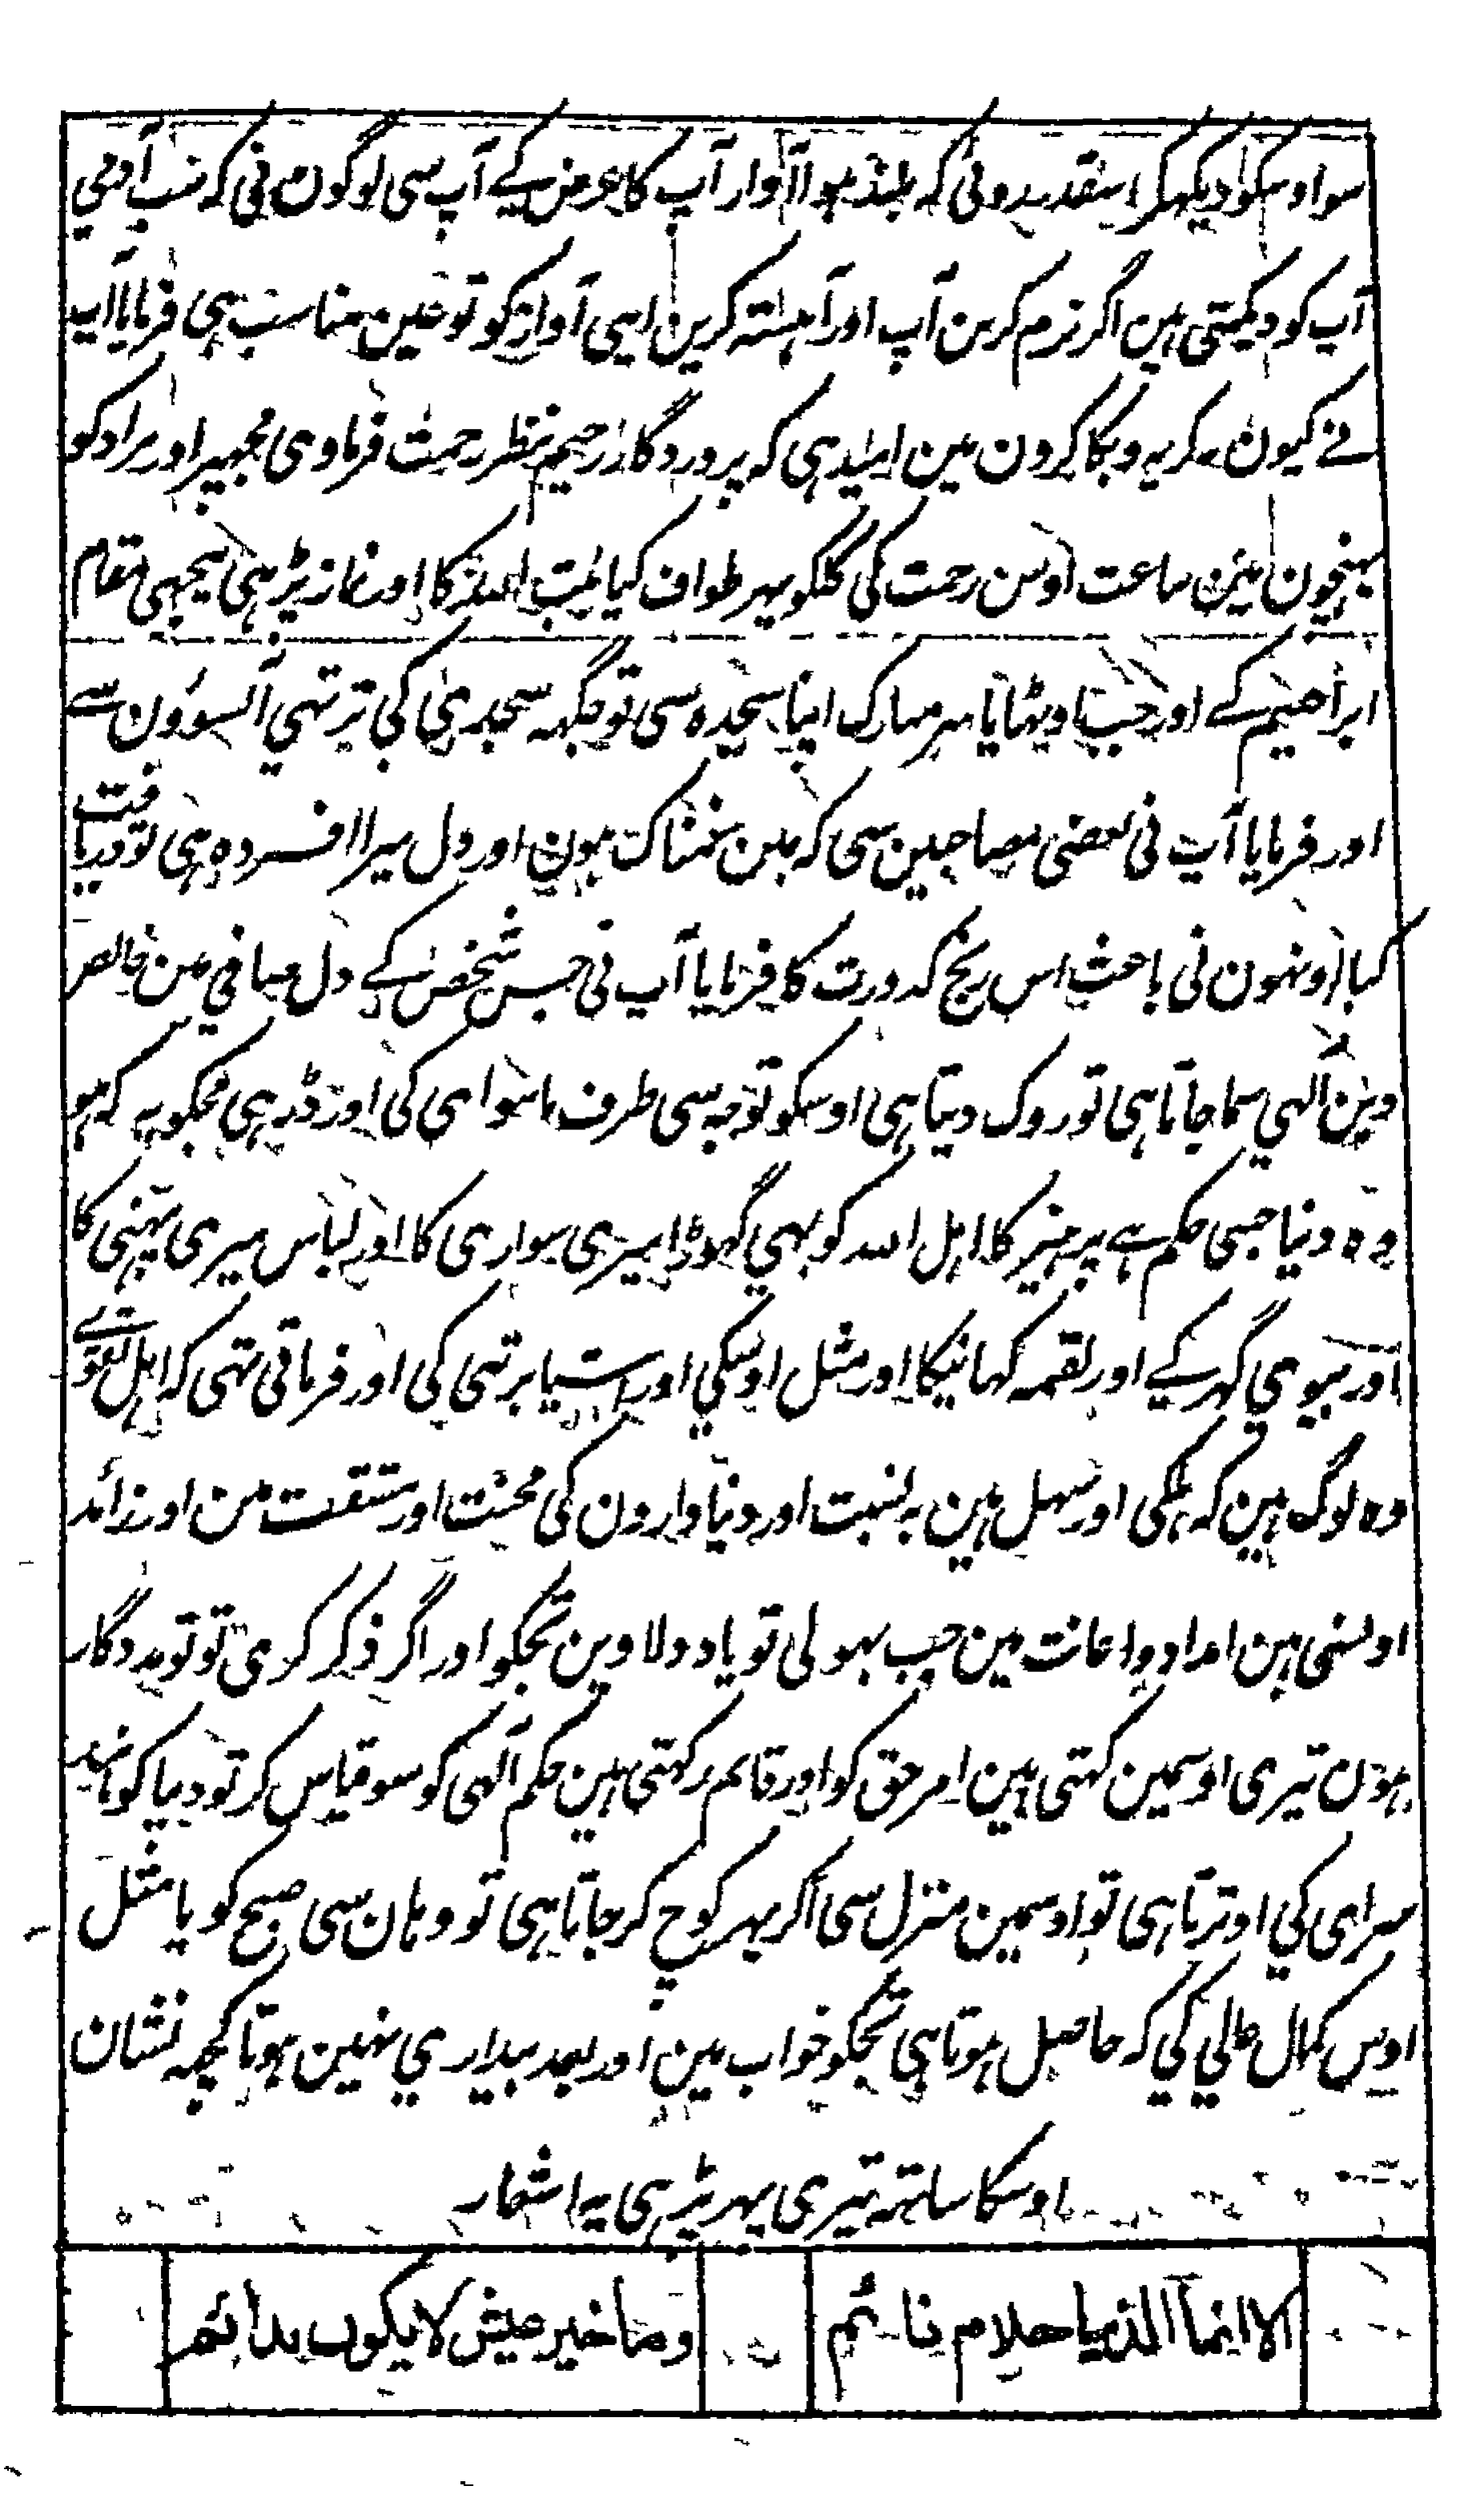 سو اوسکو دیکھکر اسقدر رونی کہ بلند ہوا آواز آپ کا عرض کے آپ سی لوگون نی کہ سب آدمی
آپ کو دیکھتی ہین اگر نرم کرین آپ اور آہستہ کرین اپنی آواز کو تو عین مناسب ہی فرمایا آپ
نے کیون نہ گریہ و بکا کرون مین امید ہی کہ پروردگار رحیم نظر رحمت فرماوی مجھپر اور مراد کو
پہنچون مین ساعت اوس رحمت کی کلکو پہر طواف کیا بیت اللہ کا اور نماز پڑہی پیچہی مقام
ابراہیم کے اور جب اوٹھایا سر مبارک اپنا سجدہ سی تو جگہہ سجدہ کی تر تہی آنسوؤن سے
اور فرمایا آپ نی بعضی مصاحبین سی کہ مین غمناک ہون اور دل میرا افسردہ ہی تو دریافت
کیا اونہون نی باعث اس رنج کدورت کا فرمایا آپ نی جس شخص کے دل صافی مین خالص
دین آلہی سما جاتا ہی تو روک دیتا ہی اوسکو توجہ سی طرف ماسوای کی اور ڈر ہی مجکو یہ کہ ہو
وہ دنیا جسی حکم ہے پرہیز کا اہل اللہ کو بہی گہوڑا میری سواری کا اور لباس میری پہننی کا
اور بیوی گہر کے اور لقمہ کہانیکا اور مثل اوسکی اور اشیا برتنی کی اور فرماتی تہی کہ اہل تقوے
وہ لوگ ہین کہ ہلکی اور سہل ہین بہ نسبت اور دنیا دارون کی محنت اور مشقت مین اور زائد
اونسی ہین امداد و اعانت مین جب بہولی تو یاد دلاوین تجکو اور اگر ذکر کری تو تو مددگار
ہون تیری اوسمین کہتی ہین امر حق کو اور قایم رکہتی ہین حکم آلہی کو سو قیاس کر تو دنیا کو مانند
سرای کی اوترتا ہی تو اوسمین منزل سی اکر پہر کوچ کر جاتا ہی تو وہان سی صبح کو یا مثل
اوس کمال علی کی کہ حاصل ہوتا ہی تجکو خواب مین اور بعد بیداری نہین ہوتا کچہہ نشان
اوسکا ساتہہ تیری پہر پڑہی یہ اشعار
الا انما الدنیا حلام نائم
وما خیر عیش لا یکون بدائم